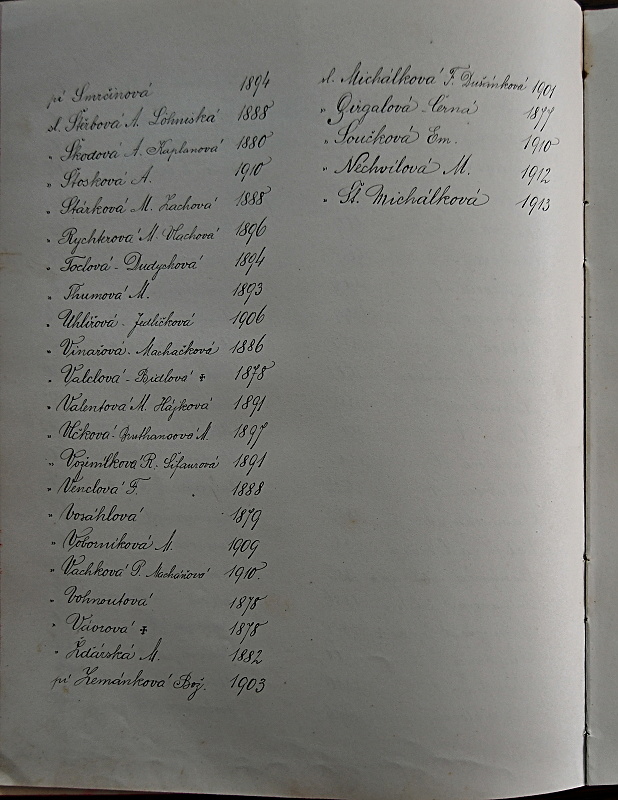 pí Smrčinová 1894
sl. Štěrbová A. 1888
„ Škodová A. Kaplanová 1880
„ Štosková A. 1910
„ Stárková M. Zachová 1888
„ Rychtrová M. Vlachová 1896
„ Toclová - Dudychová 1894
„ Thumová M. 1893
„ Uhlířová - Jedličková 1906
„ Vinařová - Machačková 1886
„ Valclová - Bidlová ✠ 1878
„ Valentová M. Hájková 1891
„ Vlčková - M. 1897
„ R. 1891
„ Venclová F. 1888
„ Vosáhlová 1879
„ Voborníková A. 1909
„ Vachková P. Macháňová 1910.
„ Vohnoutová 1878
„ Vávrová ✠ 1878
„ Žďárská M. 1882
pí Zemánková Bož. 1903
sl. Michálková F. Dušánková 1901
„ Girgalová - Černá 1877
„ Součková Em. 1910
„ Nechvílová M. 1912
„ Št. Michálková 1913